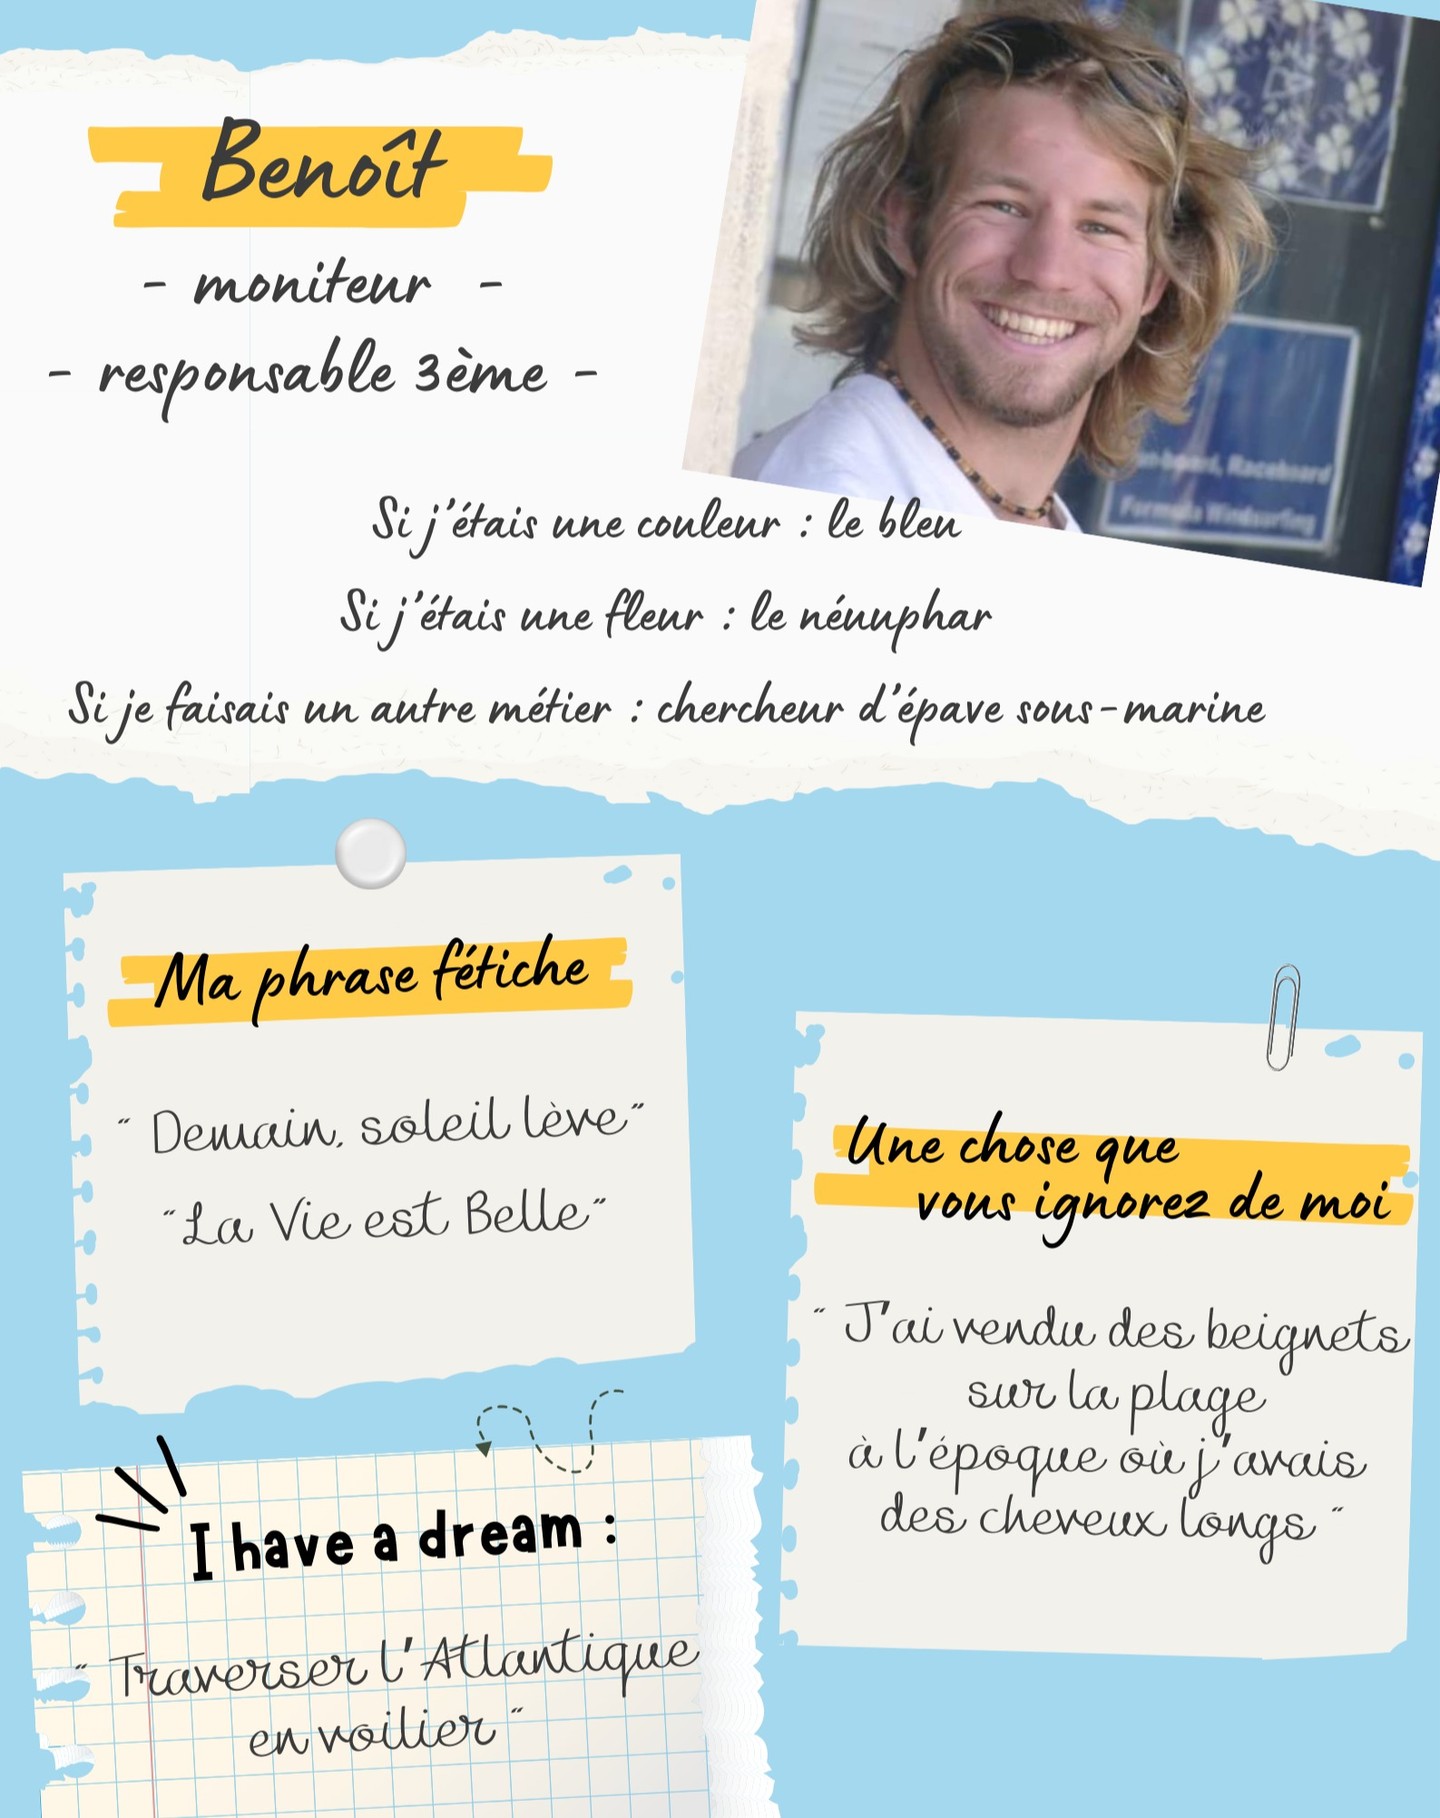 Benoît
- moniteur -
- responsable 3ème -
Si j'étais une couleur : le bleu
Si j'étais une fleur : le nénuphar
Si je faisais un autre métier : chercheur d'épave sous-marine
Ma phrase fétiche
" Demain, soleil lève"
"La Vie est Belle"
Une chose que
vous ignorez de moi
" J'ai vendu des beignets
sur la plage
à l'époque où j'avais
des cheveux longs "
I have a dream :
" Traverser l'Atlantique
en voilier "
Raceboard
Formula Windsurfing